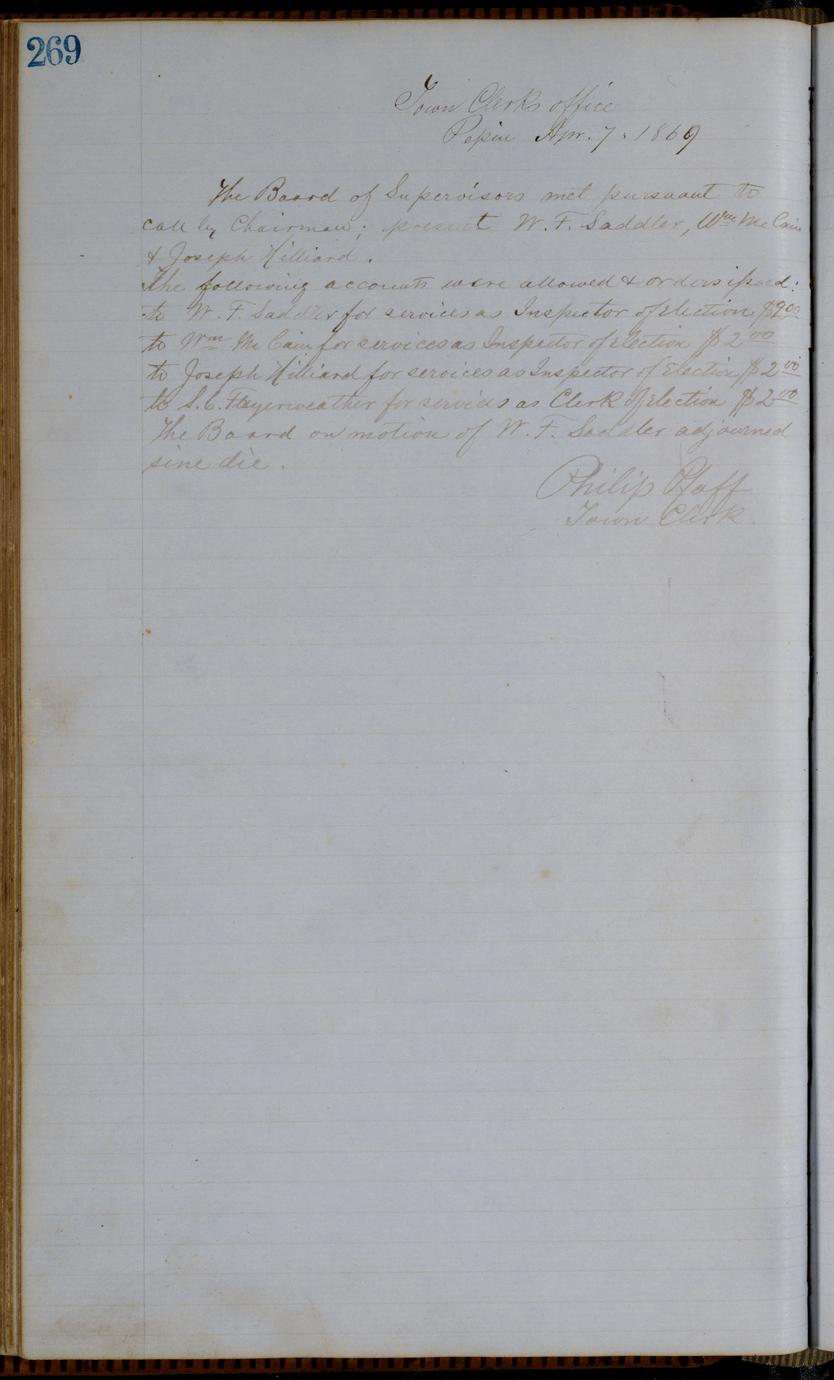 269
Town Clerks office
Pepin Apr. 7. 1869
The Board of Supervisors met pursuant to
call by Chairman; present W. F. Saddler, Wm McCain
& Joseph Hilliard.
The following accounts were allowed & orders issued:
to W. F. Saddler for services as Inspector of election $2.00
to Wm McCain for services as Inspector of election $2 00
to Joseph Hilliard for services as Inspector of Election $2 00
to S. C. for services as Clerk of election $2 00
The Board on motion of W. F. Saddler adjourned
sine die.
Philip Pfaff
Town Clerk.